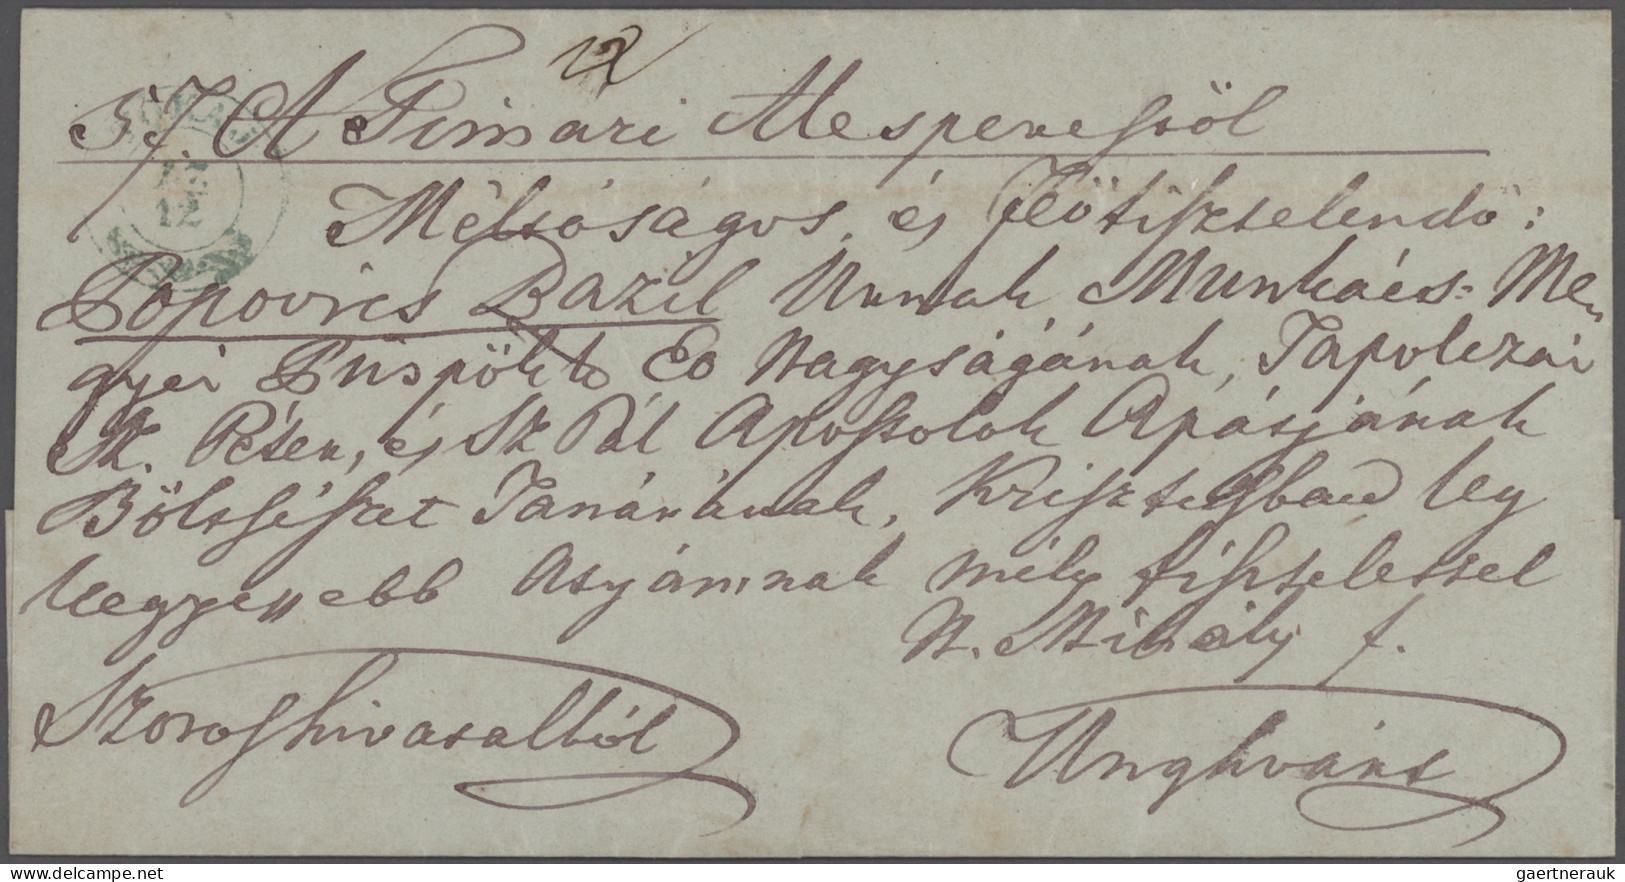 12
A Timári Alesperestöl
Méltóságos, és Főtisztelendő:
Popovics Bazil Urnak, Munkács: Me„
gyei Püspökk Eo Nagyságának, Tapolczai
Sz. Péter, és Sz Pál Apostolok Apátjának
Böltsészet Tanárának, Krisztusban leg
kegyessebb Atyámnak mély tisztelettel
N. Mihály f.
Szoros hivatalból
Unghvárt
delcampe.net
gaertnerauk